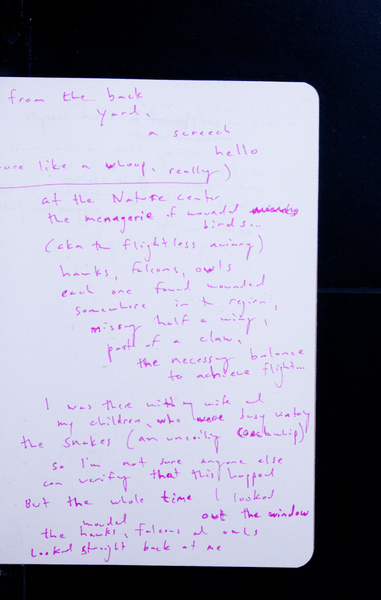 from the back
yard,
a screech
hello
like a whoop, really)
at the Nature center
the menagerie of wounded
birds...
(aka the flightless aviary)
hawks, falcons, owls
each one found wounded
somewhere in the region,
missing half a wing,
part of a claw,
the necessary balance
to achieve flight...
I was there with my wife and
my children, who were busy watching
the snakes (an unceiling)
so I'm not sure anyone else
can verify that this happed
But the whole time I looked
out the window
the wounded hawks, falcons and owls
looked straight back at me